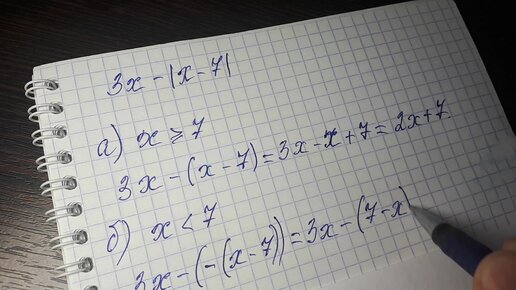 3x - |x - 7|
а) x ⩾ 7
3x - (x - 7) = 3x - x + 7 = 2x + 7.
б) x < 7
3x - (-(x - 7)) = 3x - (7 - x)